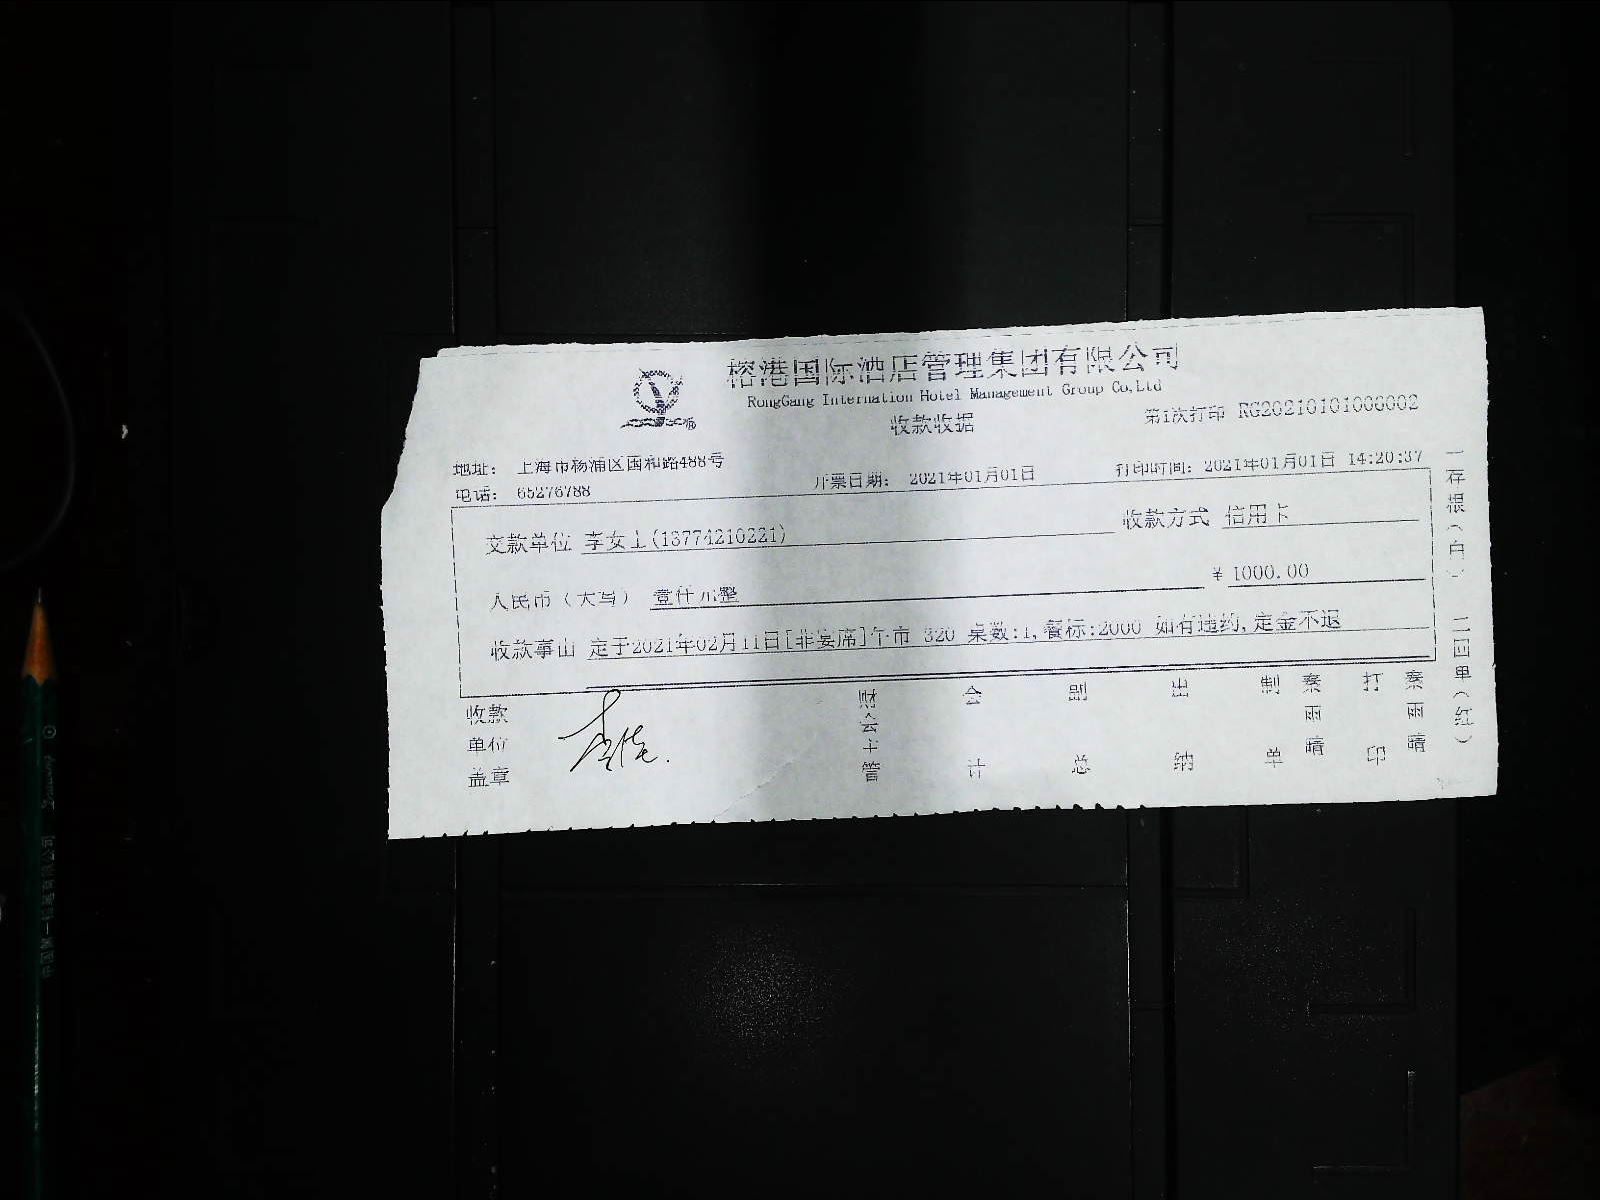 榕港国际酒店管理集团有限公司
RongGang Internation Hotel Management Group Co,Ltd
收款收据
第1次打印 RG20210101006002
地址： 上海市杨浦区国和路488号
电话： 65276788
开票日期： 2021年01月01日
打印时间： 2021年01月01日 14:20:37
交款单位 李女士(13774210221)
收款方式 信用卡
人民币（大写） 壹仟元整
¥ 1000.00
收款事由 定于2021年02月11日[非宴席]午市 320 桌数:1,餐标:2000 如有违约,定金不退
收款单位盖章
会计
副总
出纳
制单
雨晴
打印
雨晴
一存根（白） 二回单（红）
中国第一铅笔